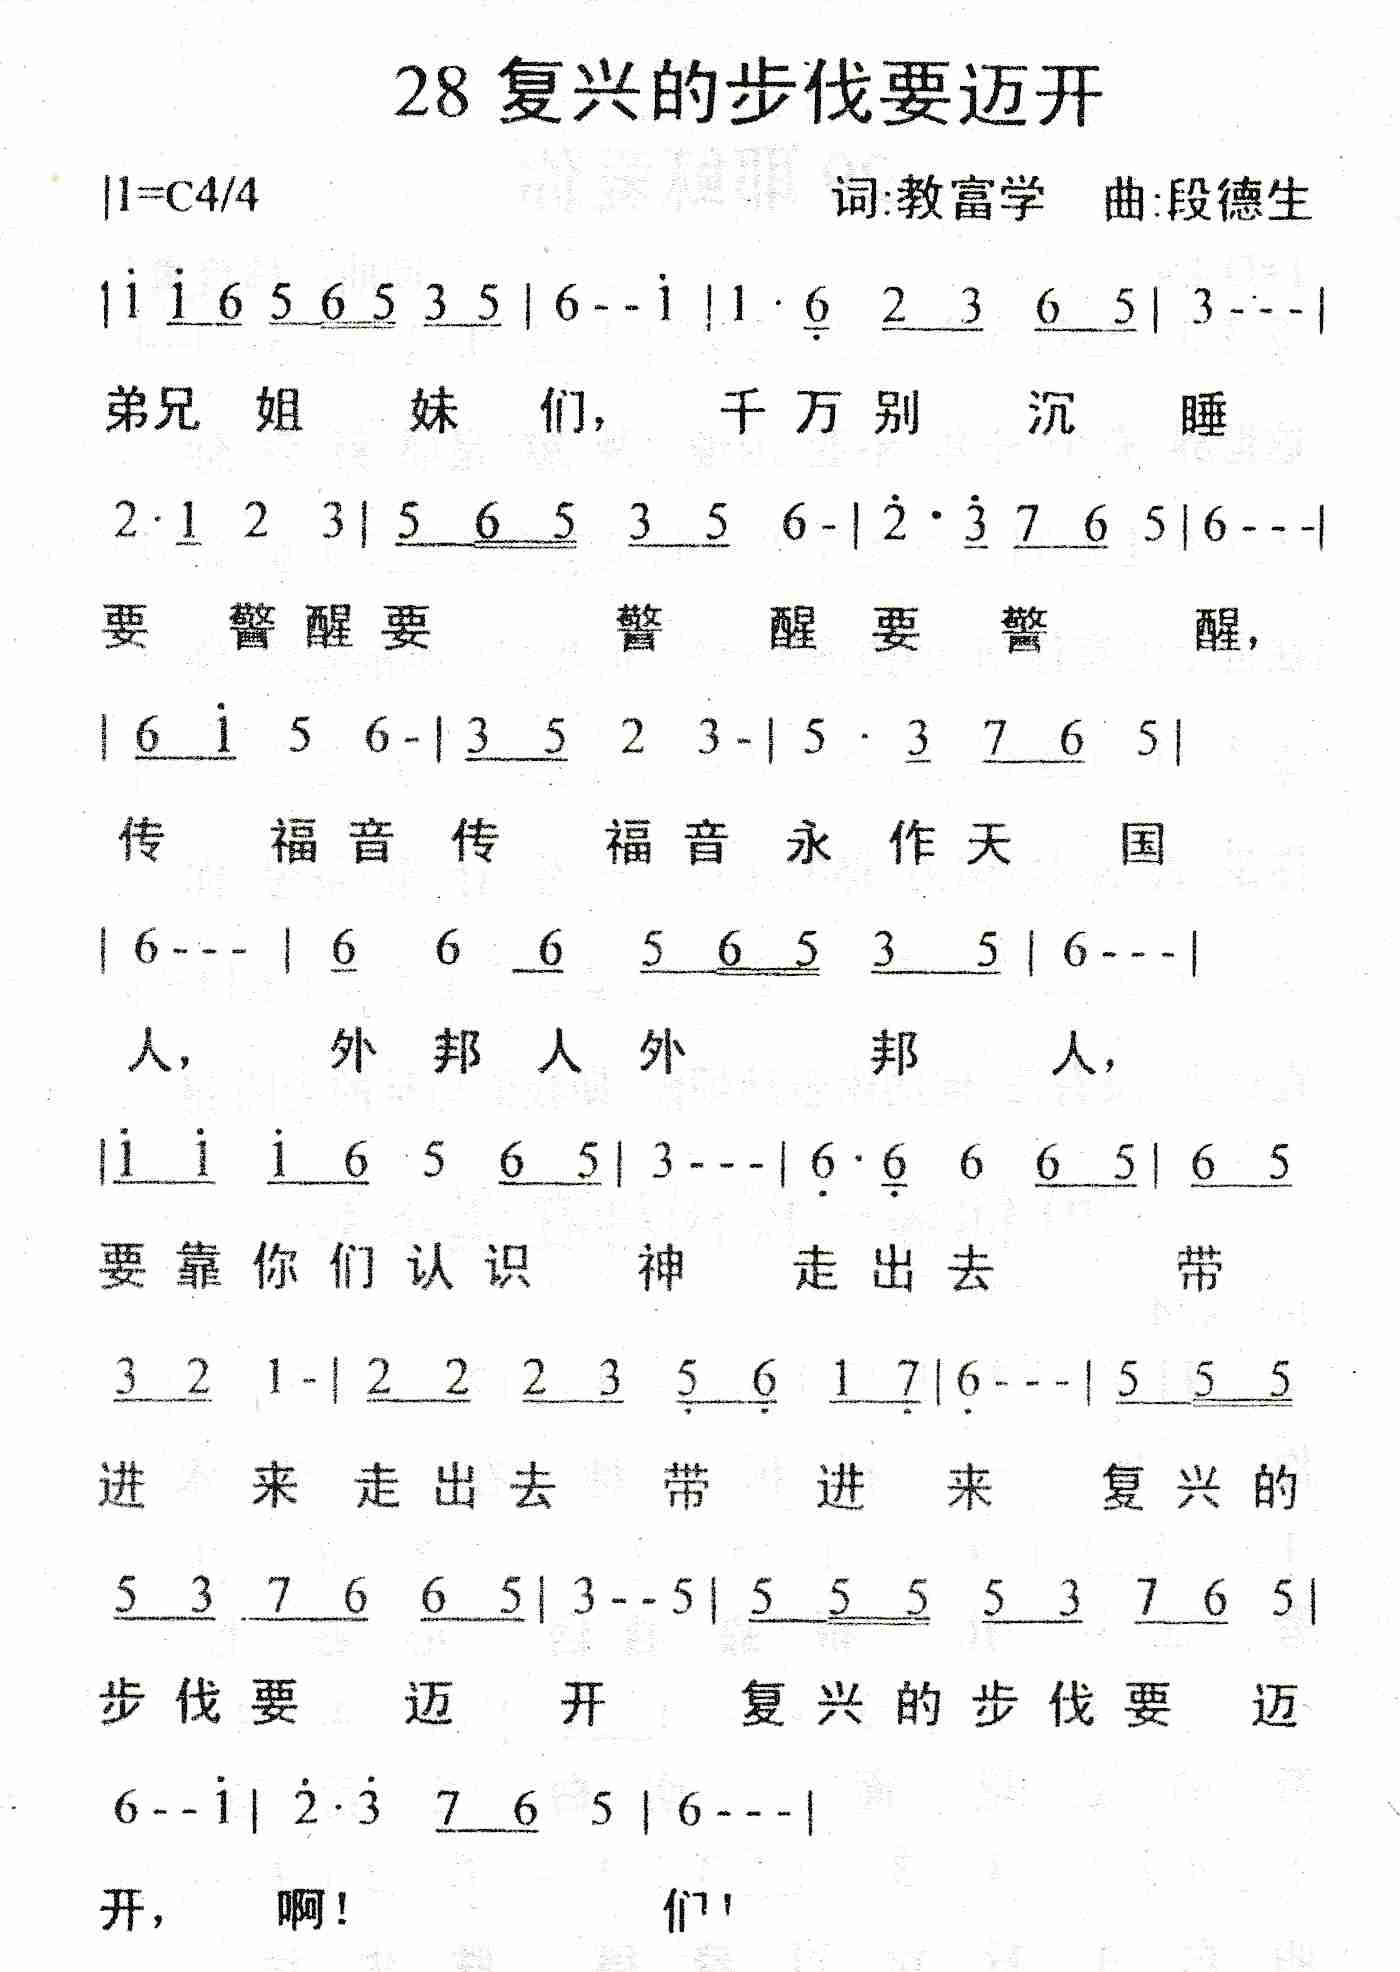 28 复兴的步伐要迈开
|1=C4/4 词:教富学 曲:段德生
|i̇ i̇ 6 5 6 5 3 5 | 6 - - i̇ | 1 · 6̣ 2 3 6 5 | 3 - - - |
弟兄 姐 妹 们, 千 万 别 沉 睡
2 · 1 2 3 | 5 6 5 3 5 6 - | 2̇ · 3̇ 7 6 5 | 6 - - - |
要 警 醒 要 警 醒 要 警 醒,
| 6 i̇ 5 6 - | 3 5 2 3 - | 5 · 3 7 6 5 |
传 福 音 传 福 音 永 作 天 国
| 6 - - - | 6 6 6 5 6 5 3 5 | 6 - - - |
人, 外 邦 人 外 邦 人,
| i̇ i̇ i̇ 6 5 6 5 | 3 - - - | 6̣ · 6̣ 6 6 5 | 6 5
要 靠 你 们 认 识 神 走 出 去 带
3 2 1 - | 2 2 2 3 5̣ 6̣ 1 7̣ | 6̣ - - - | 5 5 5
进 来 走 出 去 带 进 来 复 兴 的
5 3 7 6 6 5 | 3 - - 5 | 5 5 5 5 3 7 6 5 |
步 伐 要 迈 开 复 兴 的 步 伐 要 迈
6 - - i̇ | 2̇ · 3̇ 7 6 5 | 6 - - - |
开, 啊! 们